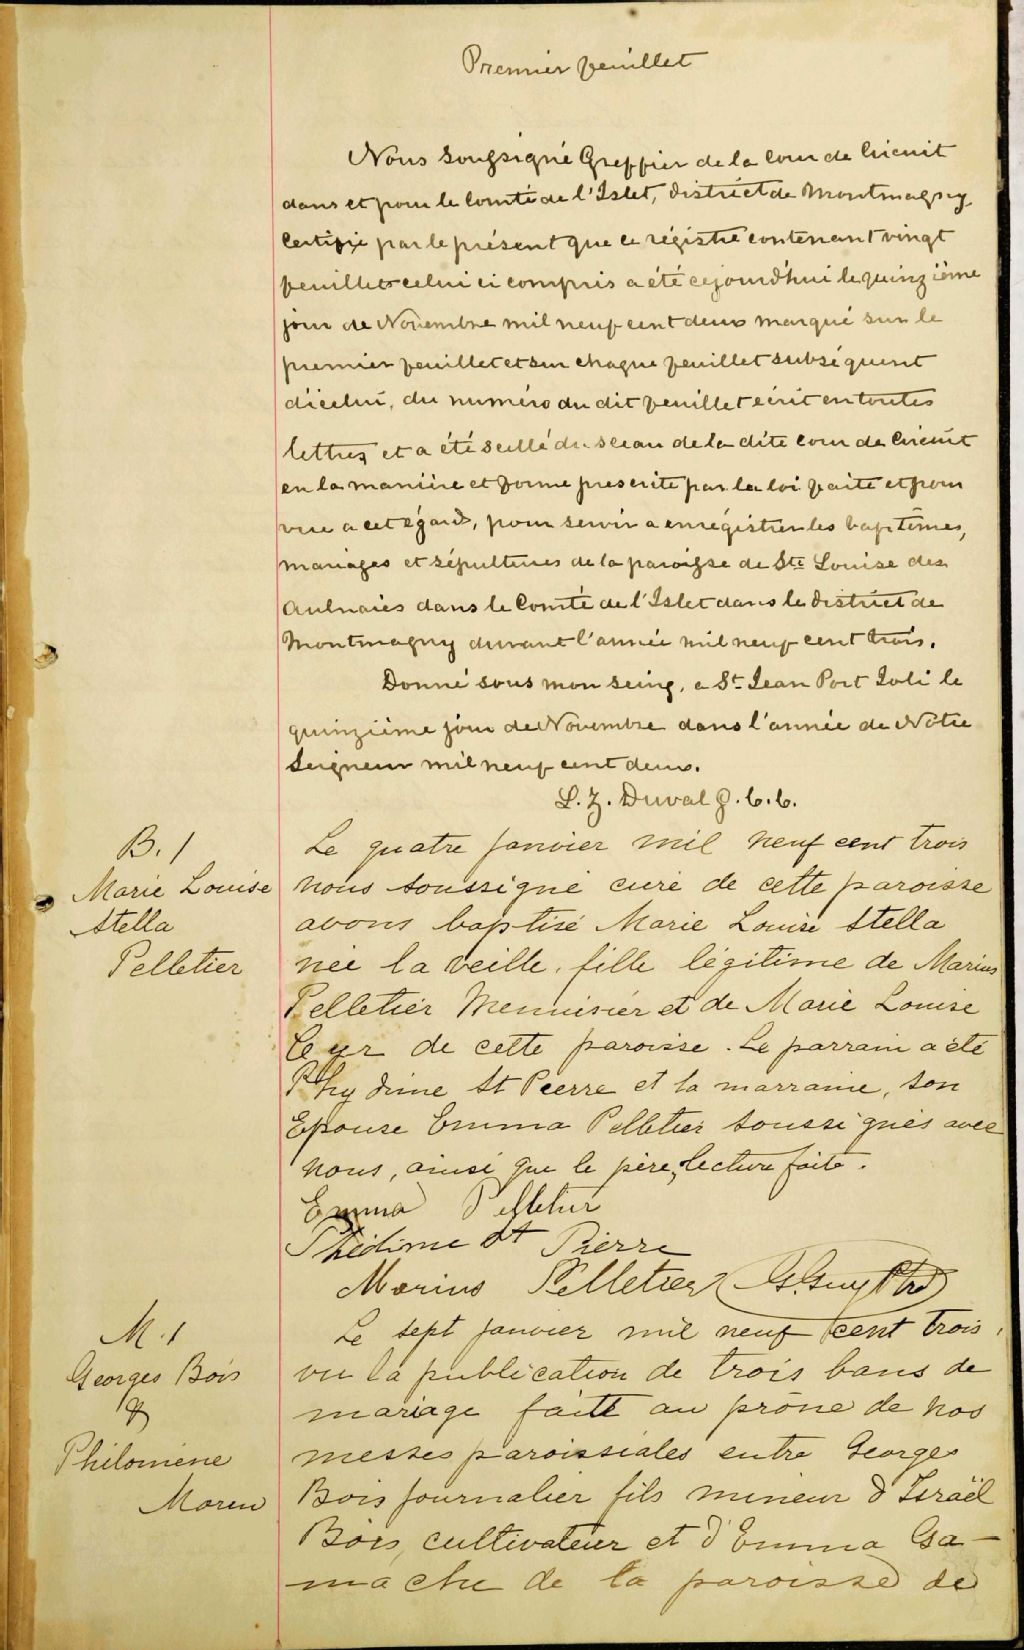 Premier feuillet
Nous Sousigné Greffier de la Cour de Circuit
dans et pour le Comté de l'Islet, district de Montmagny
Certifie par le présent que ce régistre contenant vingt
feuillets celui ci compris a été cejourd'hui le quinzième
jour de Novembre mil neuf cent deux marqué sur le
premier feuillet et sur chaque feuillet subséquent
d'icelui, du numéro du dit feuillet écrit en toutes
lettres et a été scellé du sceau de la dite cour de Circuit
en la manière et forme prescrite par la loi faite et pour
vue a cet égard, pour servir a enrégistrer les baptêmes,
mariages et sépultures de la paroisse de Ste Louise des
Aulnaies dans le Comté de l'Islet dans le district de
Montmagny durant l'année mil neuf cent trois.
Donné sous mon seing, a St Jean Port Joli le
quinzième jour de Novembre dans l'année de Notre
Seigneur mil neuf cent deux.
L. Z. Duval G. C. C.
B. 1
Marie Louise
Stella
Pelletier
Le quatre janvier mil neuf cent trois
nous soussigné curé de cette paroisse
avons baptisé Marie Louise Stella
née la veille, fille légitime de Marius
Pelletier Menuisier et de Marie Louise
Cyr de cette paroisse. Le parrain a été
Phydime St Pierre et la marraine, son
Epouse Emma Pelletier soussignés avec
nous, ainsi que le père, lecture faite.
Emma Pelletier
Phédime St Pierre
Marius Pelletier G. Guy Ptre
M. 1
Georges Bois
&
Philomène
Morin
Le sept janvier mil neuf cent trois,
vu la publication de trois bans de
mariage faite au prône de nos
messes paroissiales entre Georges
Bois journalier fils mineur d'Israël
Bois, cultivateur et d'Emma Ga-
mache de la paroisse de